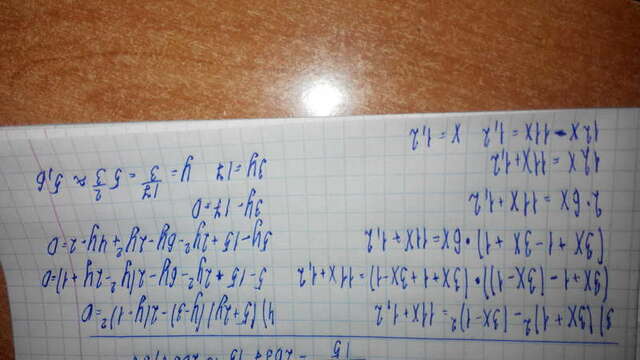 15
3) (3x+1)²-(3x-1)²=11x+1,2
(3x+1-(3x-1))·(3x+1+3x-1)=11x+1,2
(3x+1-3x+1)·6x=11x+1,2
2·6x=11x+1,2
12x=11x+1,2
12x-11x=1,2 x=1,2
4) (5+2y)(y-3)-2(y-1)²=0
5-15+2y²-6y-2(y²-2y+1)=0
5y-15+2y²-6y-2y²+4y-2=0
3y-17=0
3y=17 y=17/3=5 2/3≈5,6